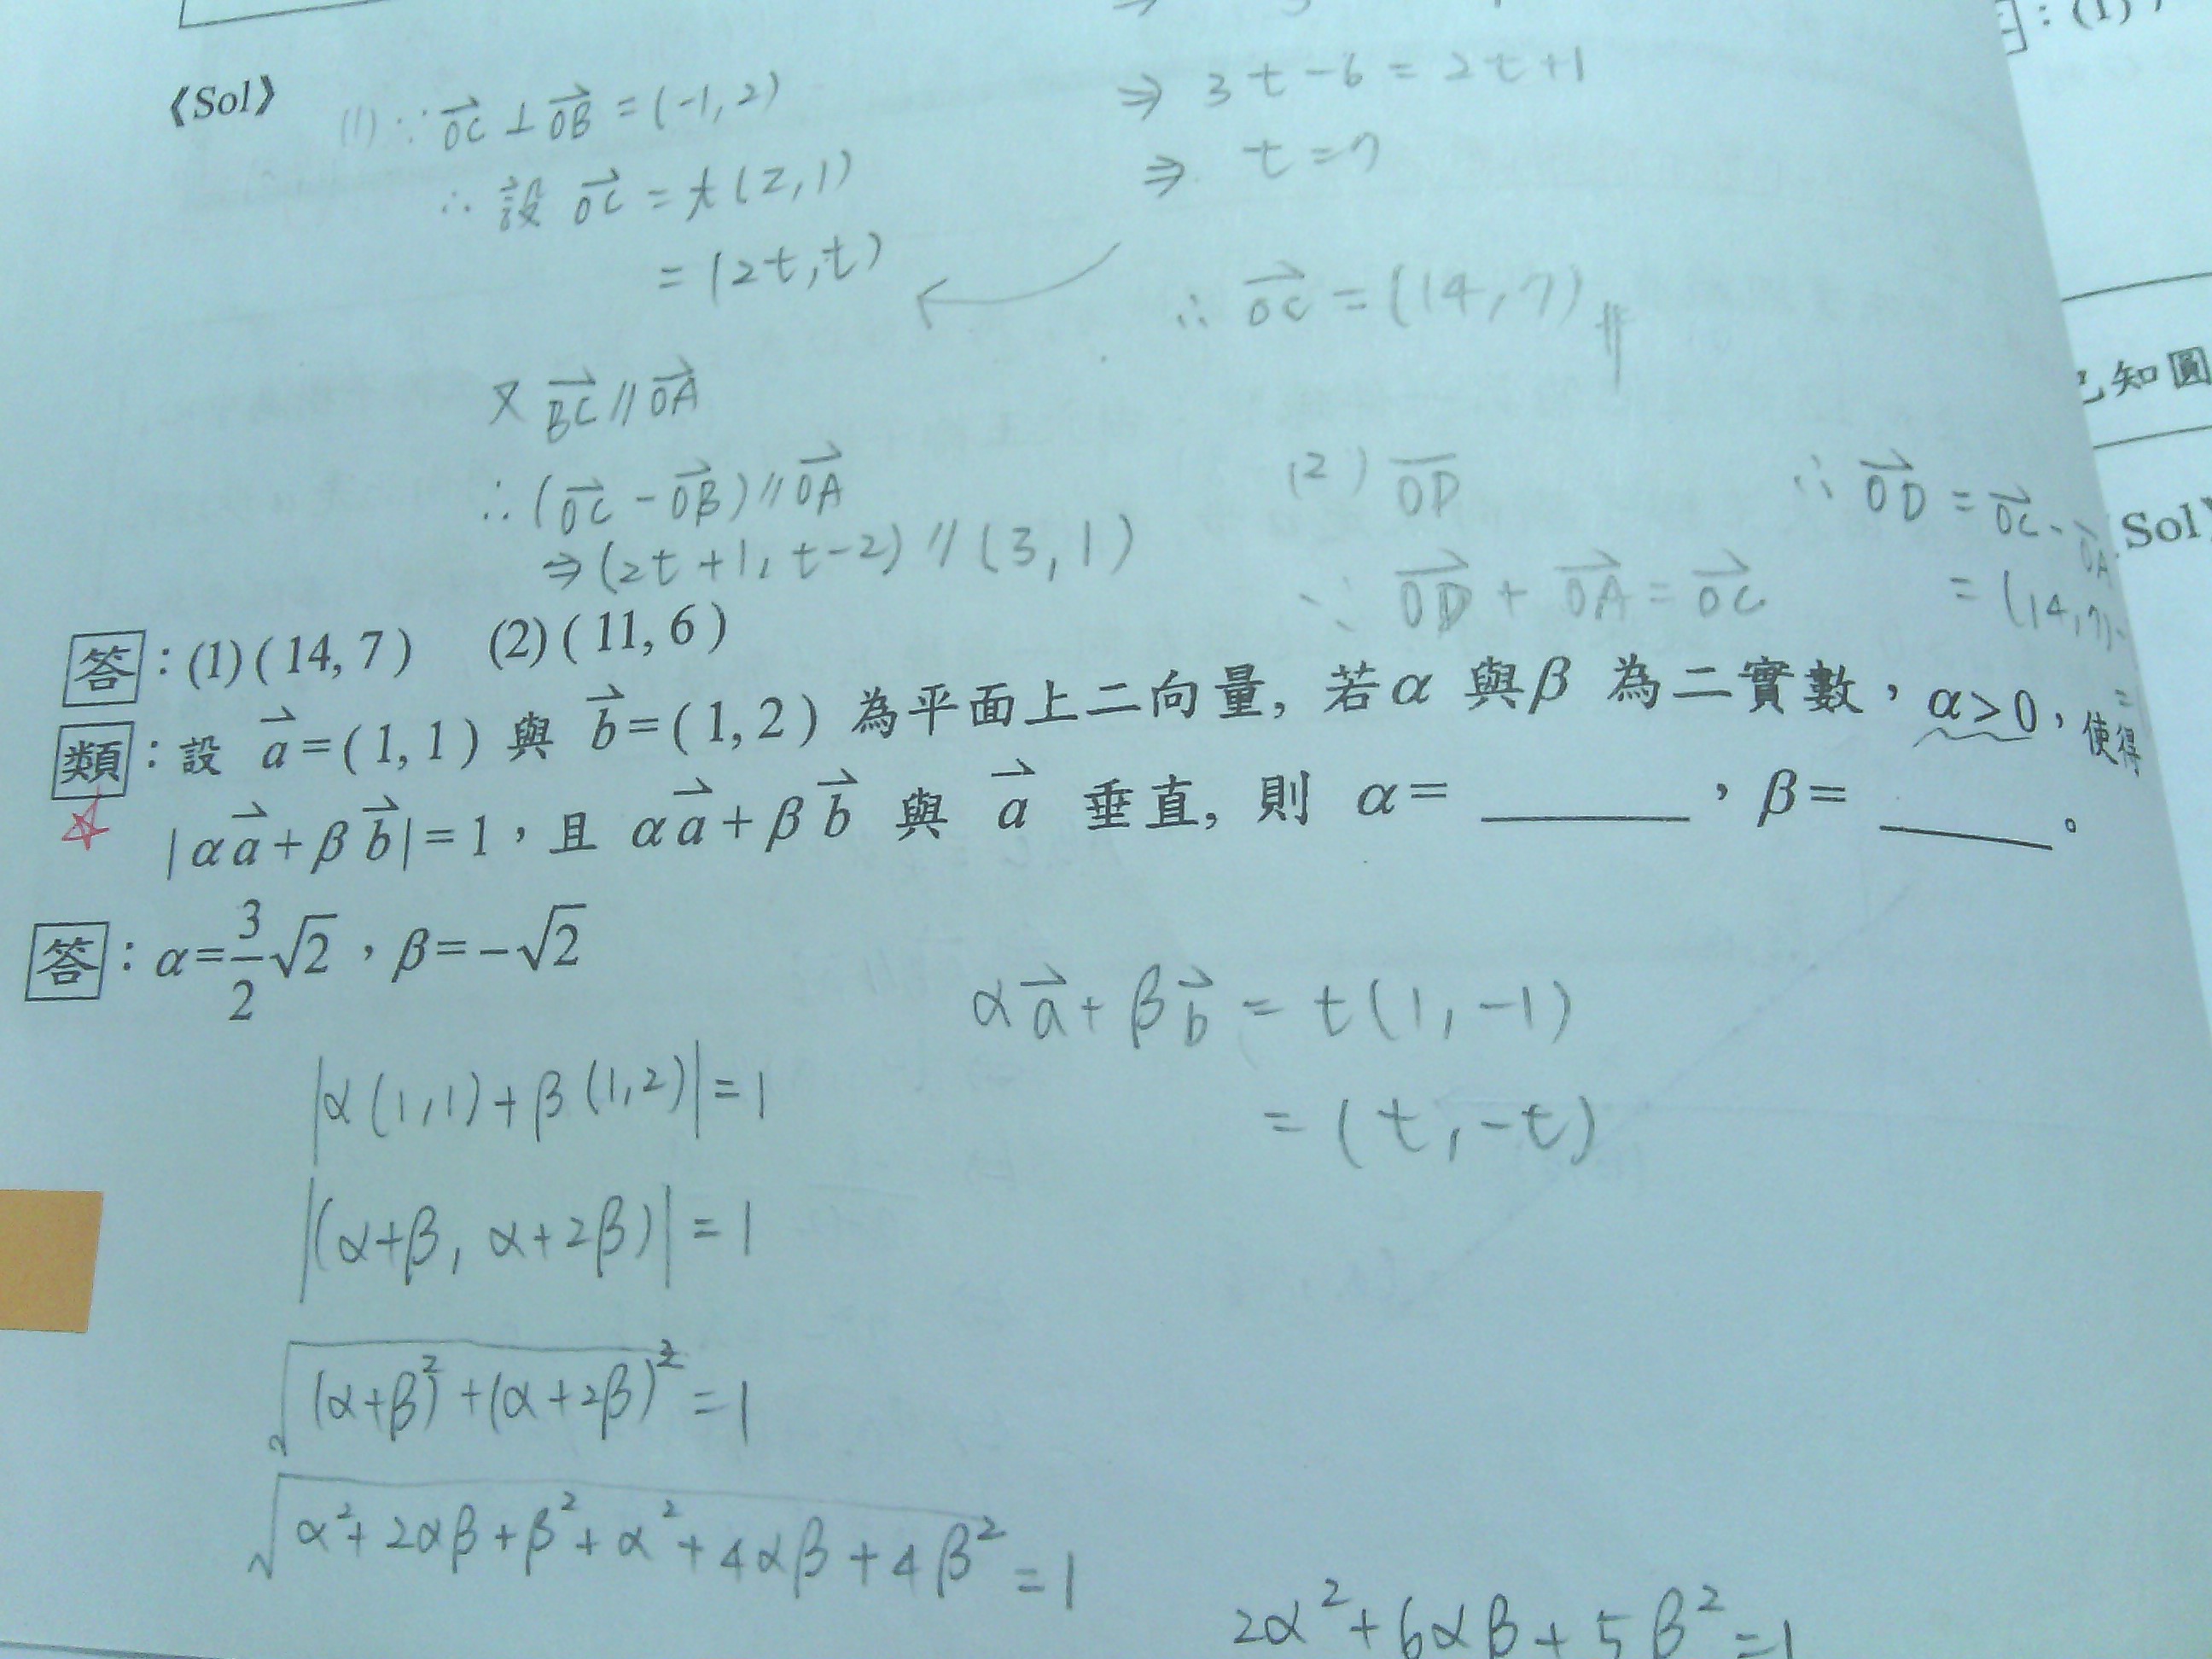 《Sol》
(1) ∵ OC ⊥ OB = (-1, 2)
∴ 設 OC = t(2, 1)
= (2t, t)
又 BC // OA
∴ (OC - OB) // OA
⇒ (2t+1, t-2) // (3, 1)
⇒ 3t-6 = 2t+1
⇒ t = 7
∴ OC = (14, 7)
(2) OD
∵ OD + OA = OC
∴ OD = OC - OA
= (14, 7)-
=
答：(1)(14, 7) (2)(11, 6)
類：設 a=(1, 1) 與 b=(1, 2) 為平面上二向量, 若α 與β 為二實數，α>0，使得
|αa+βb|=1，且 αa+βb 與 a 垂直, 則 α=______，β=______。
答：α=3/2√2，β=-√2
αa + βb = t(1, -1)
= (t, -t)
|α(1,1)+β(1,2)|=1
|(α+β, α+2β)|=1
√((α+β)²+(α+2β)²)=1
√(α²+2αβ+β²+α²+4αβ+4β²)=1
2α²+6αβ+5β²=1
：(1)
已知圓
Sol